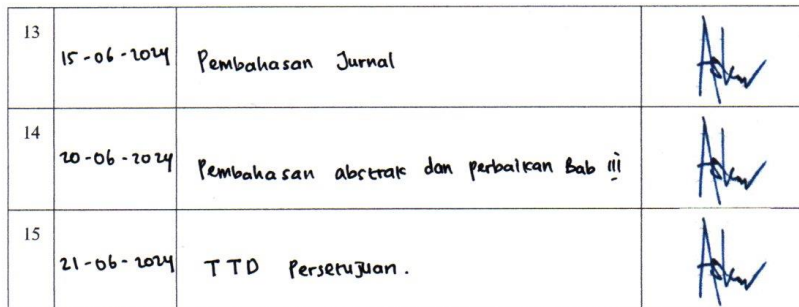 13
15-06-2024 Pembahasan Jurnal
14
20-06-2024 Pembahasan abstrak dan perbaikan Bab III
15
21-06-2024 TTD Persetujuan.